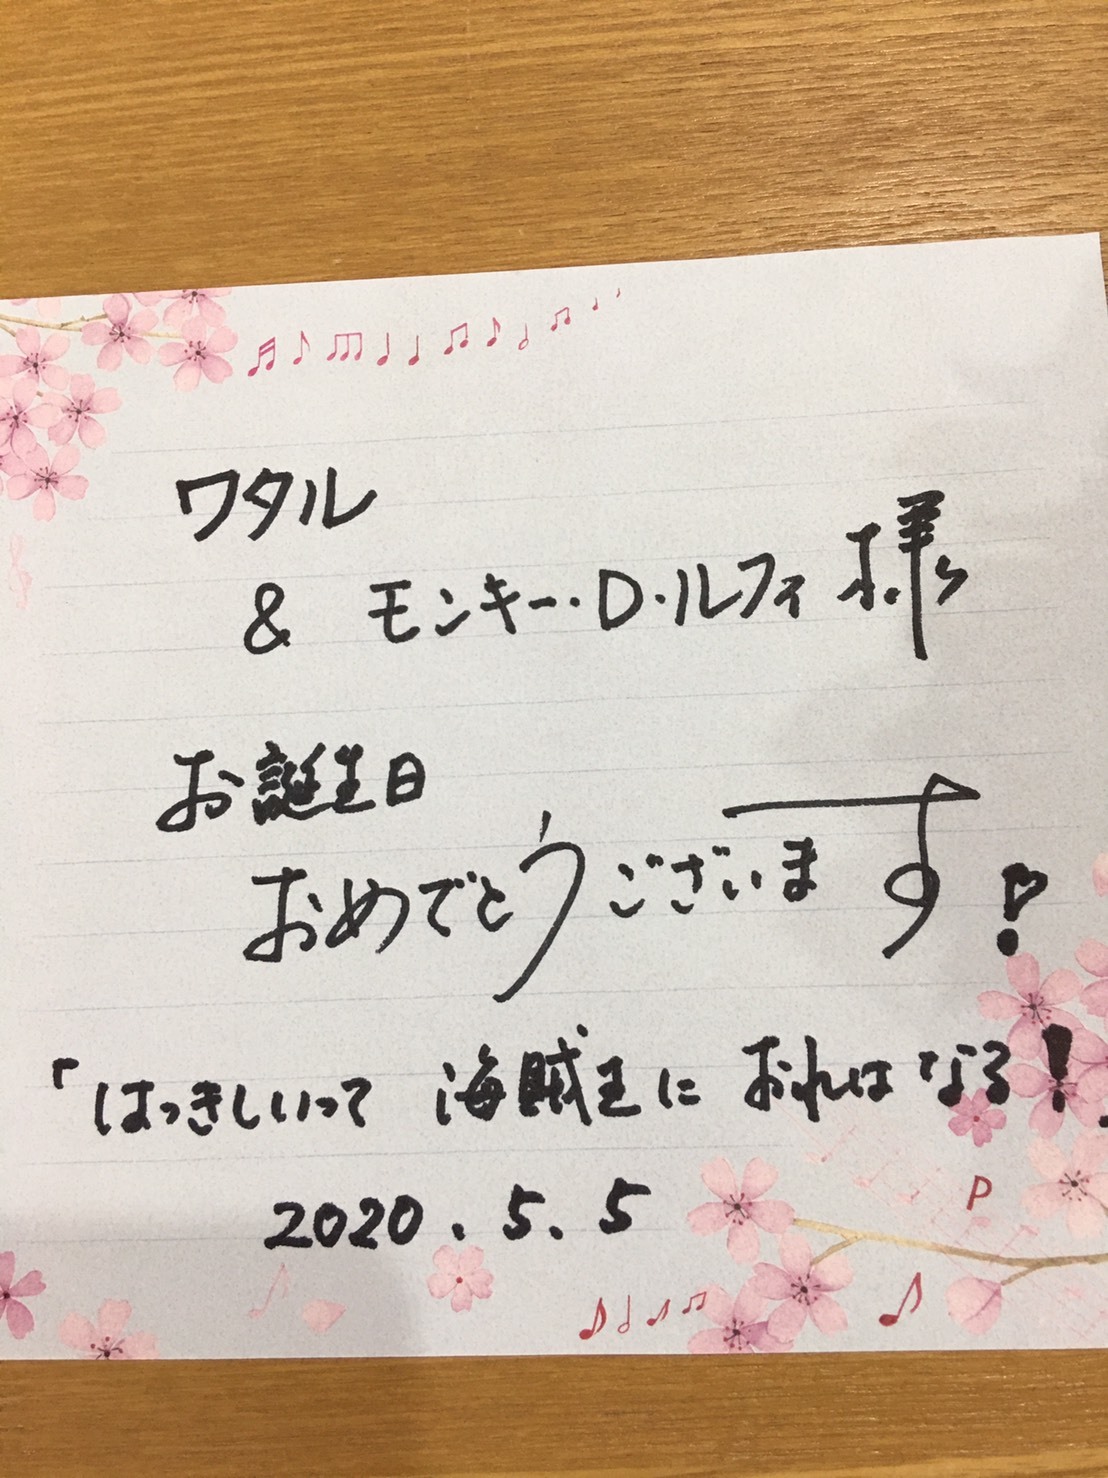 ワタル
& モンキー・D・ルフィ 様
お誕生日
おめでとうございます!
「はっきしいって 海賊王に おれは なる!」
2020.5.5
P